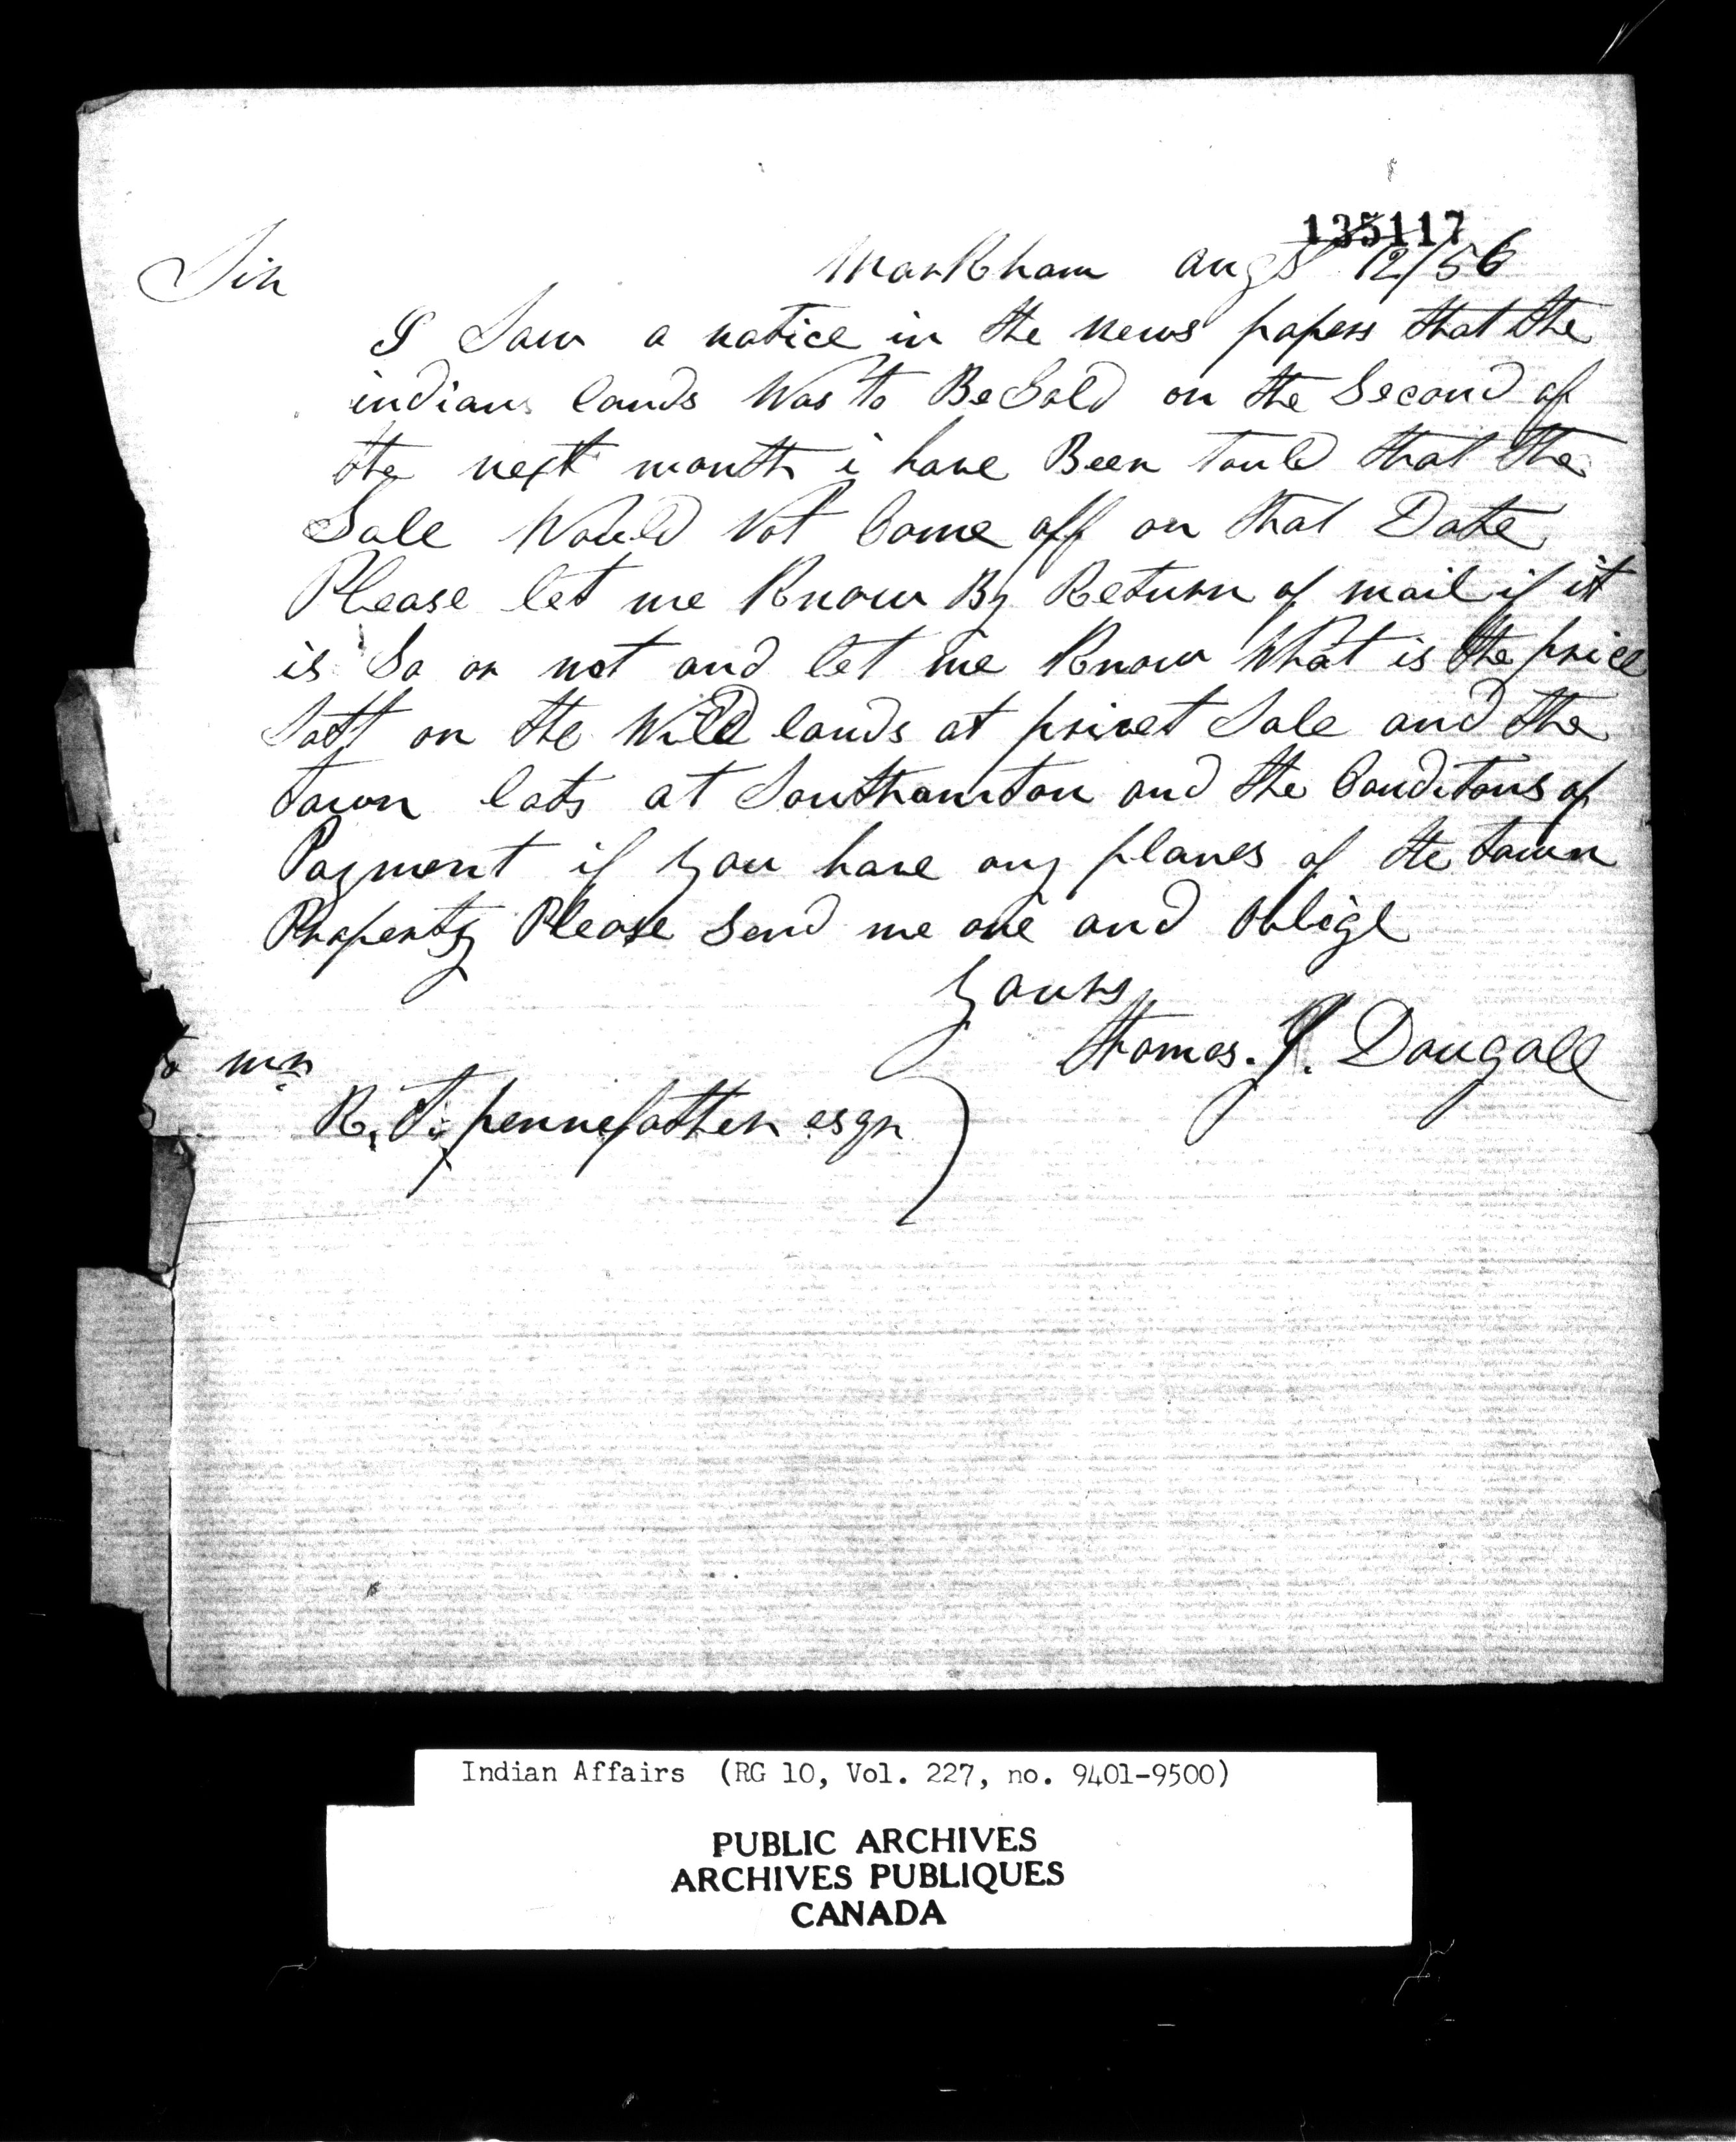 135117
Markham augst 12/56
Sir
I Saw a notice in the news papers that the
indians lands Was to Be Sold on the Second of
the next month i have Been tould that the
Sale Would Not Come off on that Date
Please let me Know By Return of mail if it
is So or not and let me Know What is the price
Satt on the Wild lands at privet Sale and the
town lots at Southamton and the Conditons of
Payment if you have any planes of the town
Property Please Send me one and oblige
yours
thomas. J. Dougall
to mr
R. T. pennefather esqr
Indian Affairs (RG 10, Vol. 227, no. 9401-9500)
PUBLIC ARCHIVES
ARCHIVES PUBLIQUES
CANADA